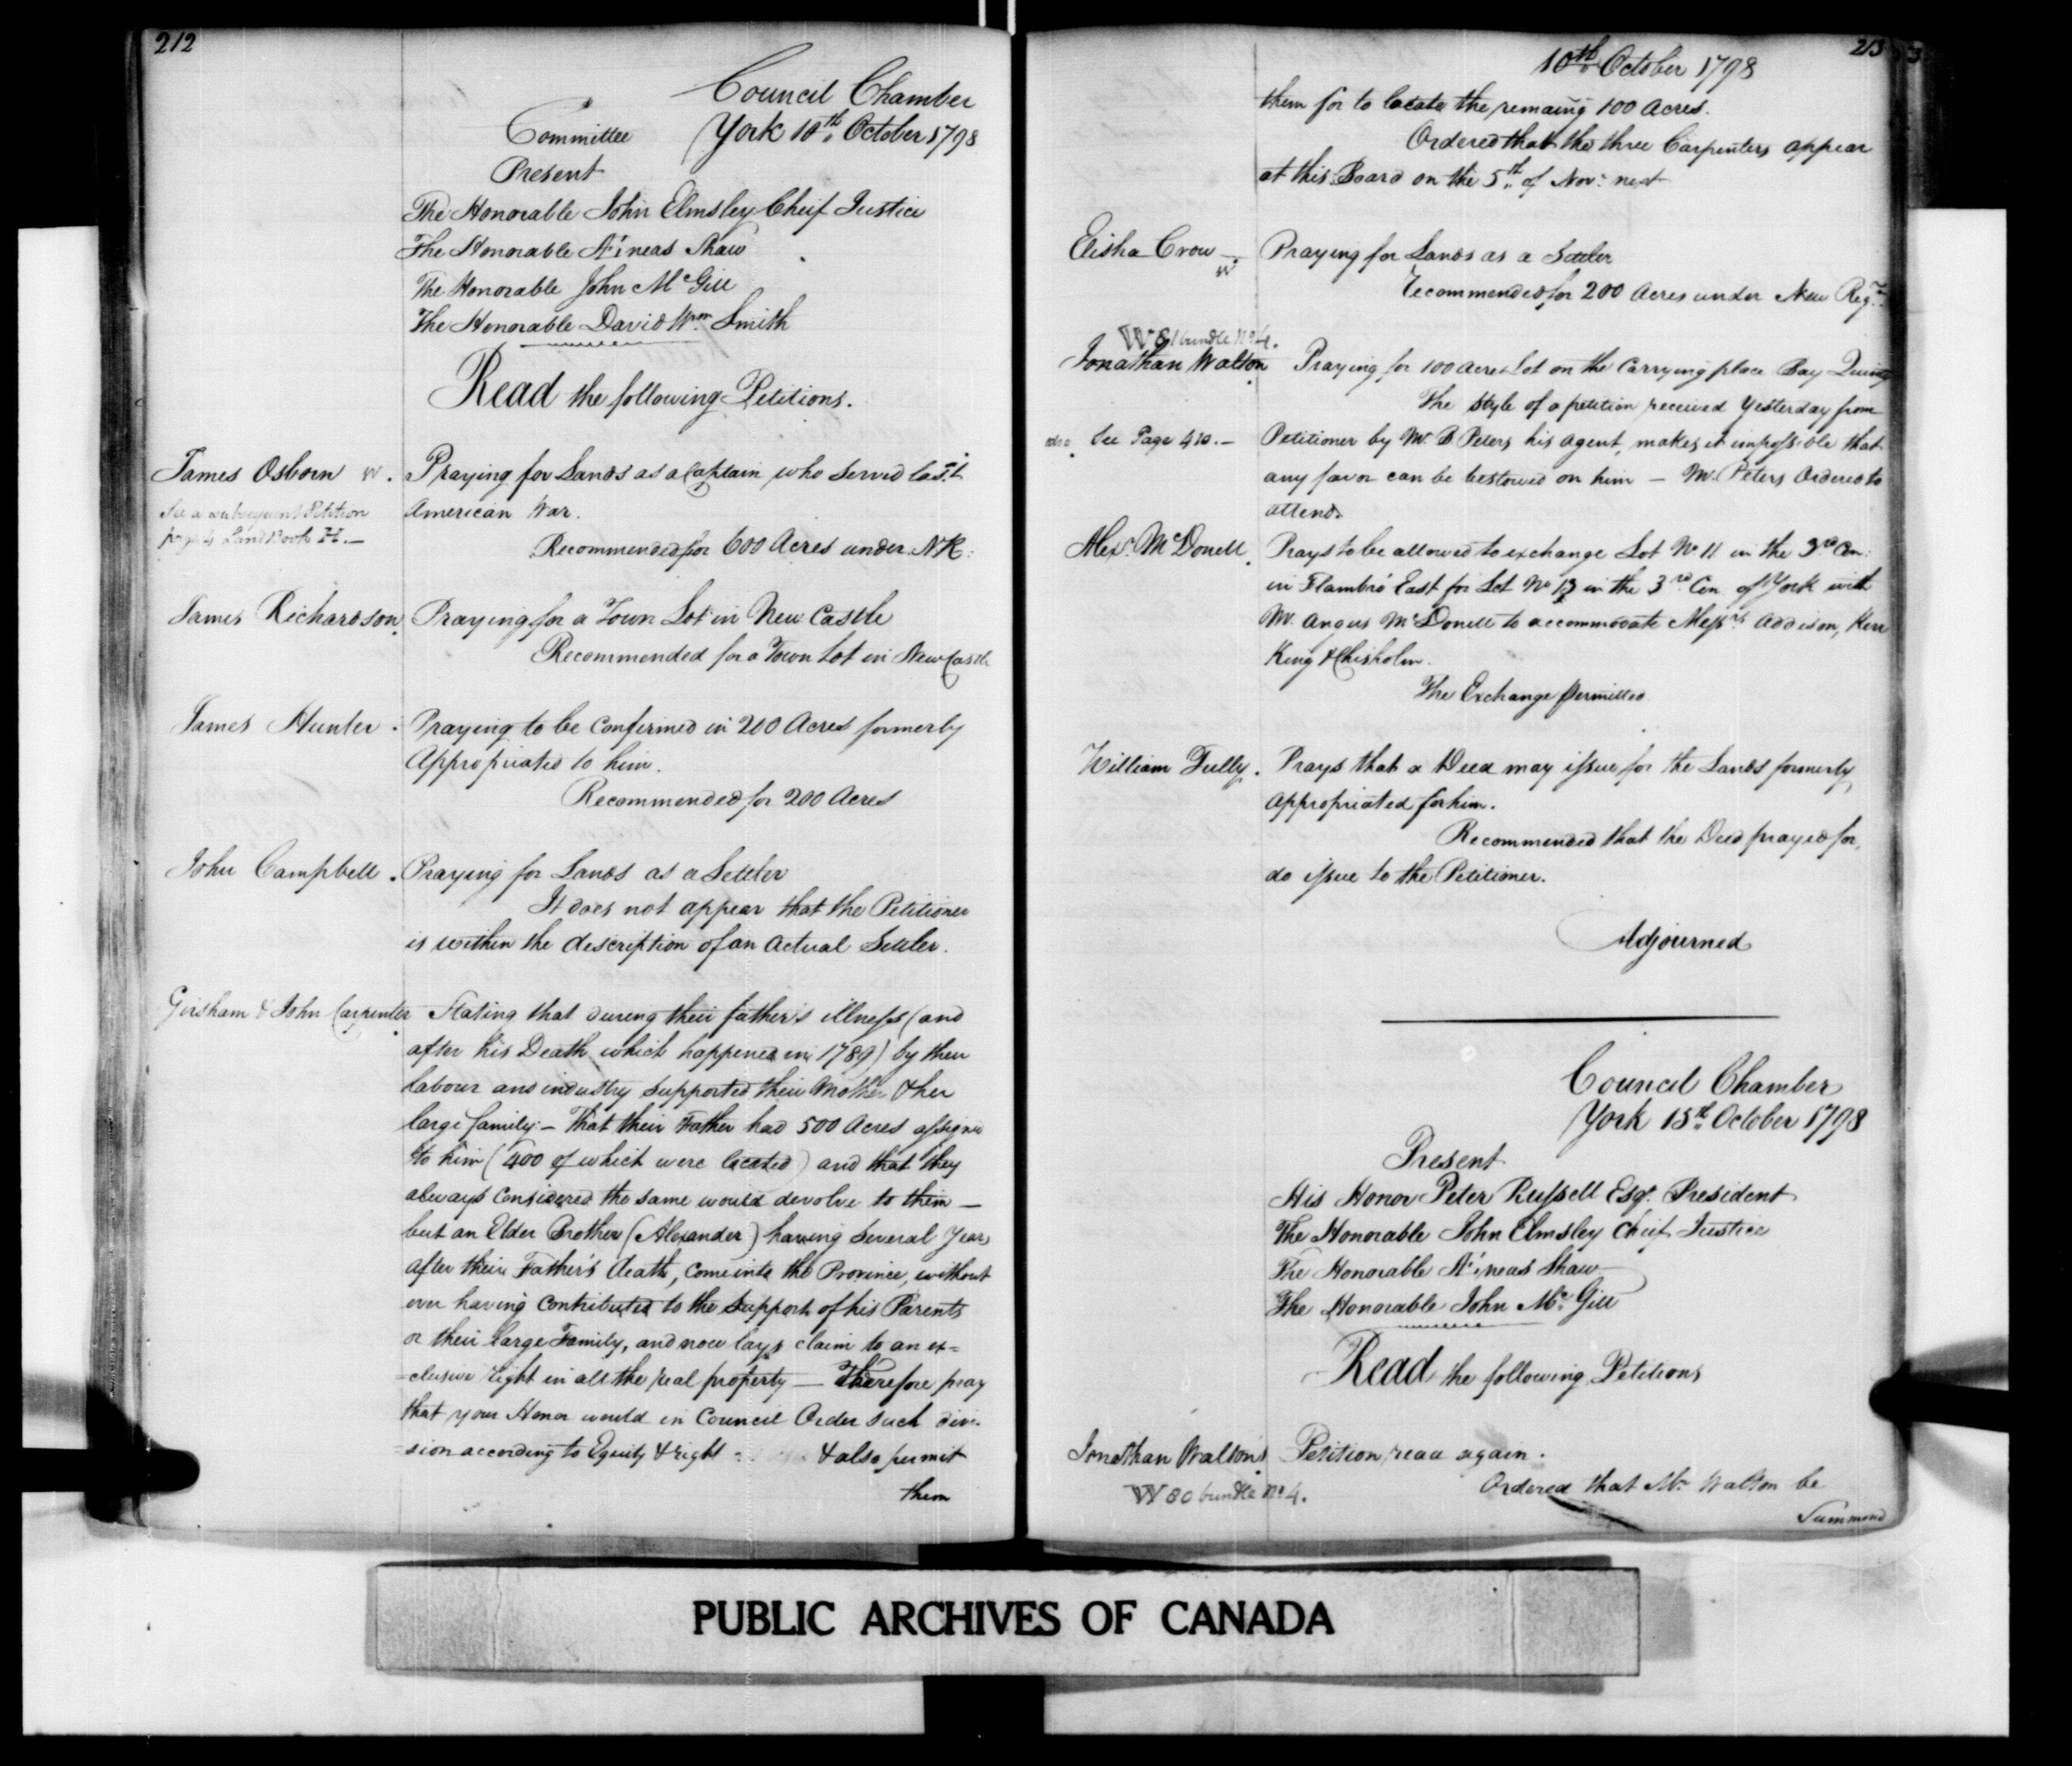 212
Council Chamber
Committee York 10th October 1798
Present
The Honorable John Elmsley Cheif Justice
The Honorable Æneas Shaw
The Honorable John McGill
The Honorable David Wm Smith
Read the following Petitions.
James Osborn W. Praying for Lands as a Captain who Served last
See a subsequent Petition American War.
page 4 Land Book H.— Recommended for 600 Acres under N R:
James Richardson Praying for a Town Lot in New Castle
Recommended for a Town Lot in New Castle
James Hunter. Praying to be Confirmed in 200 Acres formerly
Appropriated to him.
Recommended for 200 Acres
John Campbell. Praying for Lands as a Settler
It does not appear that the Petitioner
is within the description of an Actual Settler.
Girsham & John Carpenter Stating that during their father's illness (and
after his Death which happened in 1789) by their
labour and industry Supported their Mother & her
large family:— That their Father had 500 Acres assigned
to him (400 of which were located) and that they
always Considered the same would devolve to them—
but an Elder Brother (Alexander) having Several Years
after their Father's death, come into the Province, without
ever having Contributed to the Support of his Parents
or their Large Family, and now lays claim to an ex=
=clusive right in all the real property — Therefore pray
that your Honor would in Council Order such divi=
=sion according to Equity & right & also permit
them
213
10th October 1798
them for to locate the remaing 100 Acres.
Ordered that the three Carpenters appear
at this Board on the 5th of Novr next
Elisha Crow — Praying for Lands as a Settler
W Recommended for 200 Acres under New Regns.
W 81 bundle No 4.
Jonathan Walton Praying for 100 Acres Lot on the Carrying place Bay Quinty
The Style of a petition received Yesterday from
also See Page 410.— Petitioner by Mr. B Peters his Agent, makes it impossible that
any favor can be bestowed on him — Mr. Peters Ordered to
attend.
Alexr. McDonell Prays to be allowed to exchange Lot No 11 in the 3rd Con:
in Flambro' East for Lot No 13 in the 3rd Con of York with
Mr. Angus McDonell to accommodate Messrs. Addison, Kerr
King & Chisholm.
The Exchange permitted
William Fully. Prays that a Deed may issue for the Lands formerly
appropriated for him.
Recommended that the Deed prayed for,
do issue to the Petitioner.
Adjourned
Council Chamber
York 15th October 1798
Present
His Honor Peter Russell Esqr. President
The Honorable John Elmsley Chief Justice
The Honorable Æneas Shaw
The Honorable John McGill
Read the following Petitions
Jonathan Walton's Petition read again.
W 80 bundle No 4. Ordered that Mr. Walton be
Summond
PUBLIC ARCHIVES OF CANADA